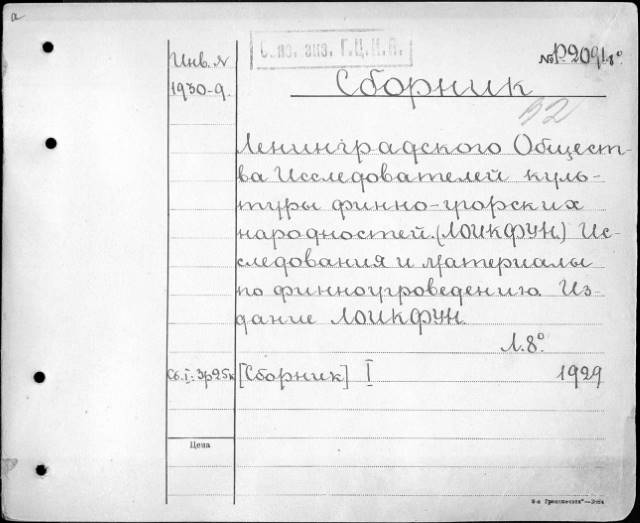 а
Инв. №
1930-9.
№Р2091/8°
Сборник
92
Ленинградского Общест-
ва Исследователей куль-
туры финно-угорских
народностей. (ЛОИКФУН.) Ис-
следования и материалы
по финноугроведению. Из-
дание ЛОИКФУН.
Л. 8°.
Сб. I: 3р25к [Сборник] I 1929
Цена